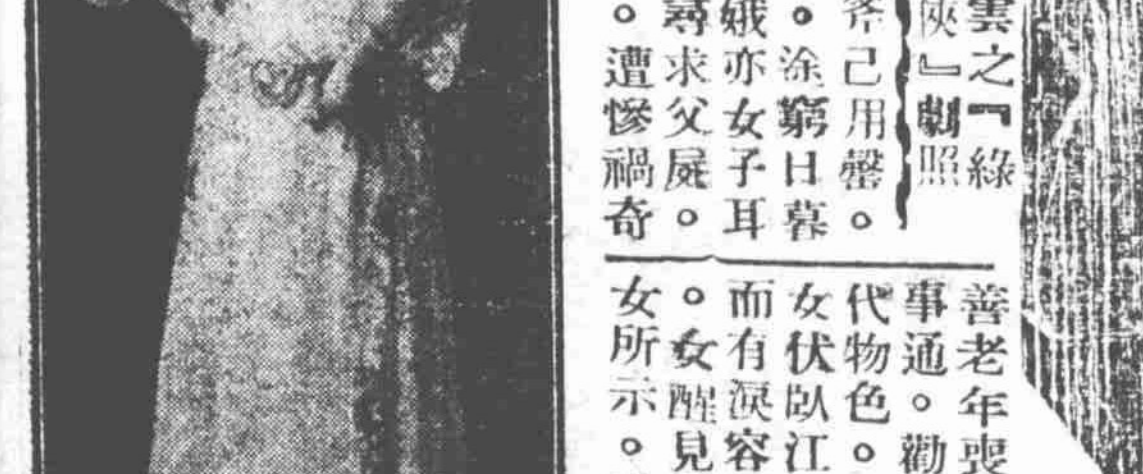 雲之『綠
俠』劇照
斧己用罄。
。涂窮日暮
娥亦女子耳
尋求父屍。
。遭慘禍奇
善老年喪
事通。勸
代物色。
女伏臥江
而有淚容
。女醒見
女所示。